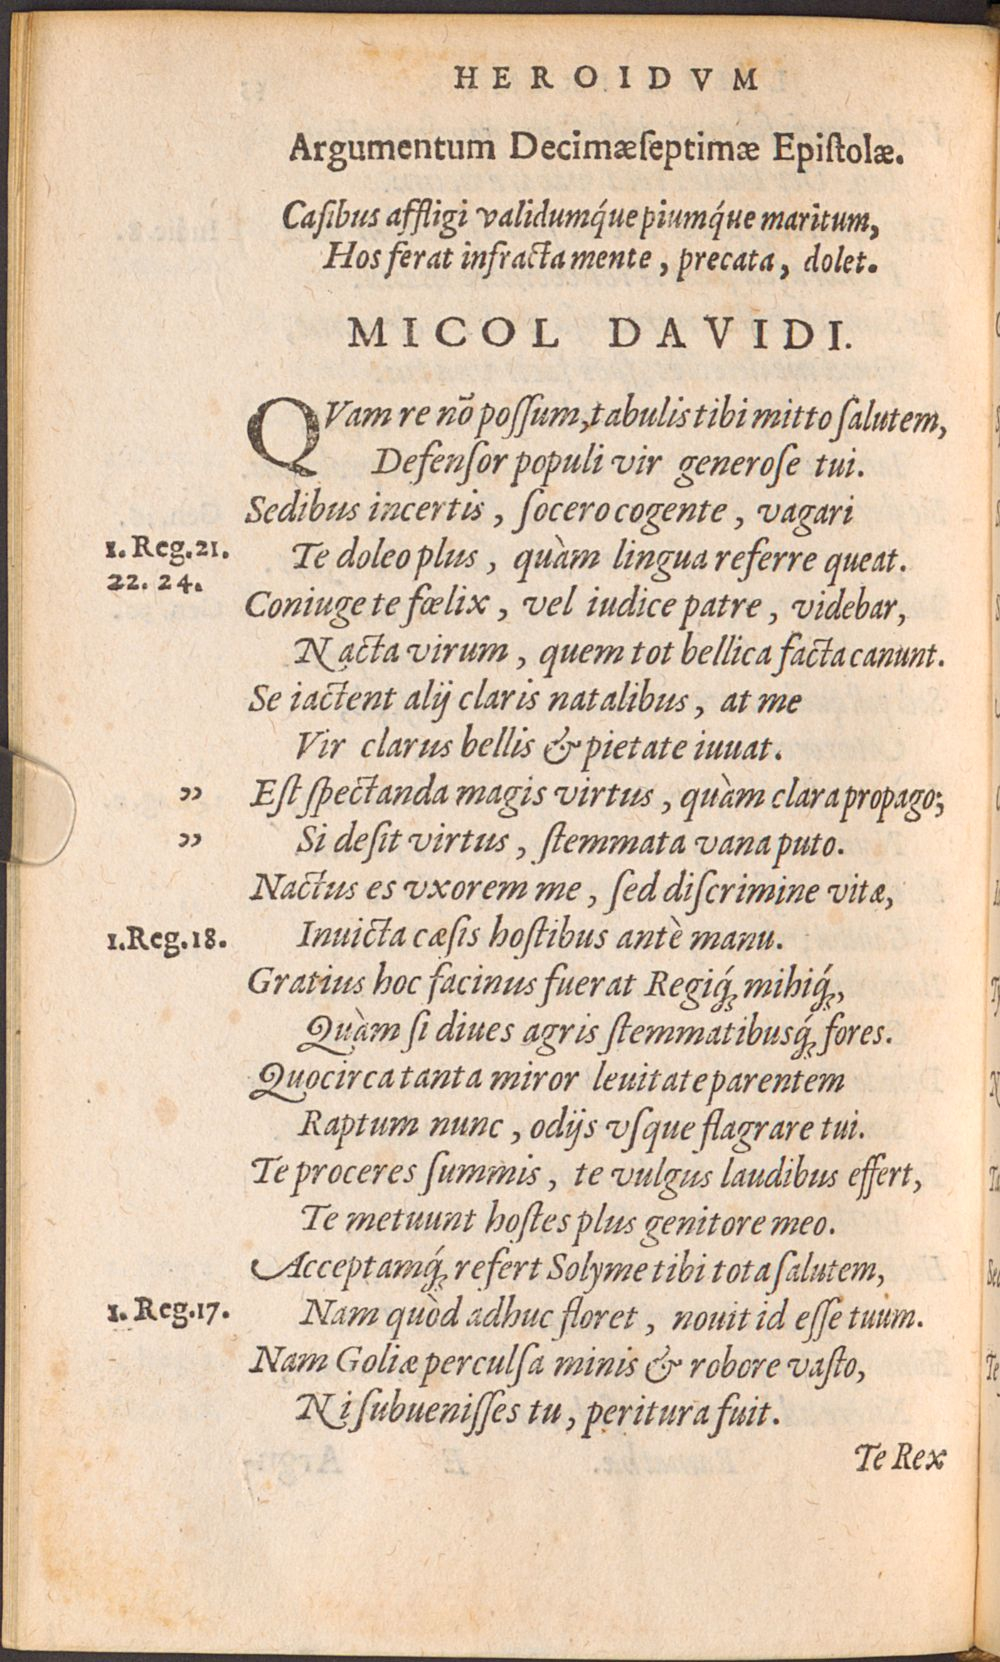 HEROIDVM
Argumentum Decimæſeptimæ Epiſtolæ.
Caſibus affligi validumq́ue piumq́ue maritum,
Hos ferat infracta mente, precata, dolet.
MICOL DAVIDI.
QVam re nõ poſſum, tabulis tibi mitto ſalutem,
Defenſor populi vir generoſe tui.
Sedibus incertis, ſocero cogente, vagari
1. Reg. 21. Te doleo plus, quàm lingua referre queat.
22. 24. Coniuge te fœlix, vel iudice patre, videbar,
Nacta virum, quem tot bellica facta canunt.
Se iactent alij claris natalibus, at me
Vir clarus bellis & pietate iuuat.
” Eſt ſpectanda magis virtus, quàm clara propago;
” Si deſit virtus, ſtemmata vana puto.
Nactus es vxorem me, ſed diſcrimine vitæ,
1. Reg. 18. Inuicta cæſis hoſtibus antè manu.
Gratius hoc facinus fuerat Regiq́; mihiq́;,
Quàm ſi diues agris ſtemmatibusq́; fores.
Quocirca tanta miror leuitate parentem
Raptum nunc, odijs vſque flagrare tui.
Te proceres ſummis, te vulgus laudibus effert,
Te metuunt hoſtes plus genitore meo.
Acceptamq́; refert Solyme tibi tota ſalutem,
1. Reg. 17. Nam quòd adhuc floret, nouit id eſſe tuum.
Nam Goliæ perculſa minis & robore vaſto,
Ni ſubueniſſes tu, peritura fuit.
Te Rex